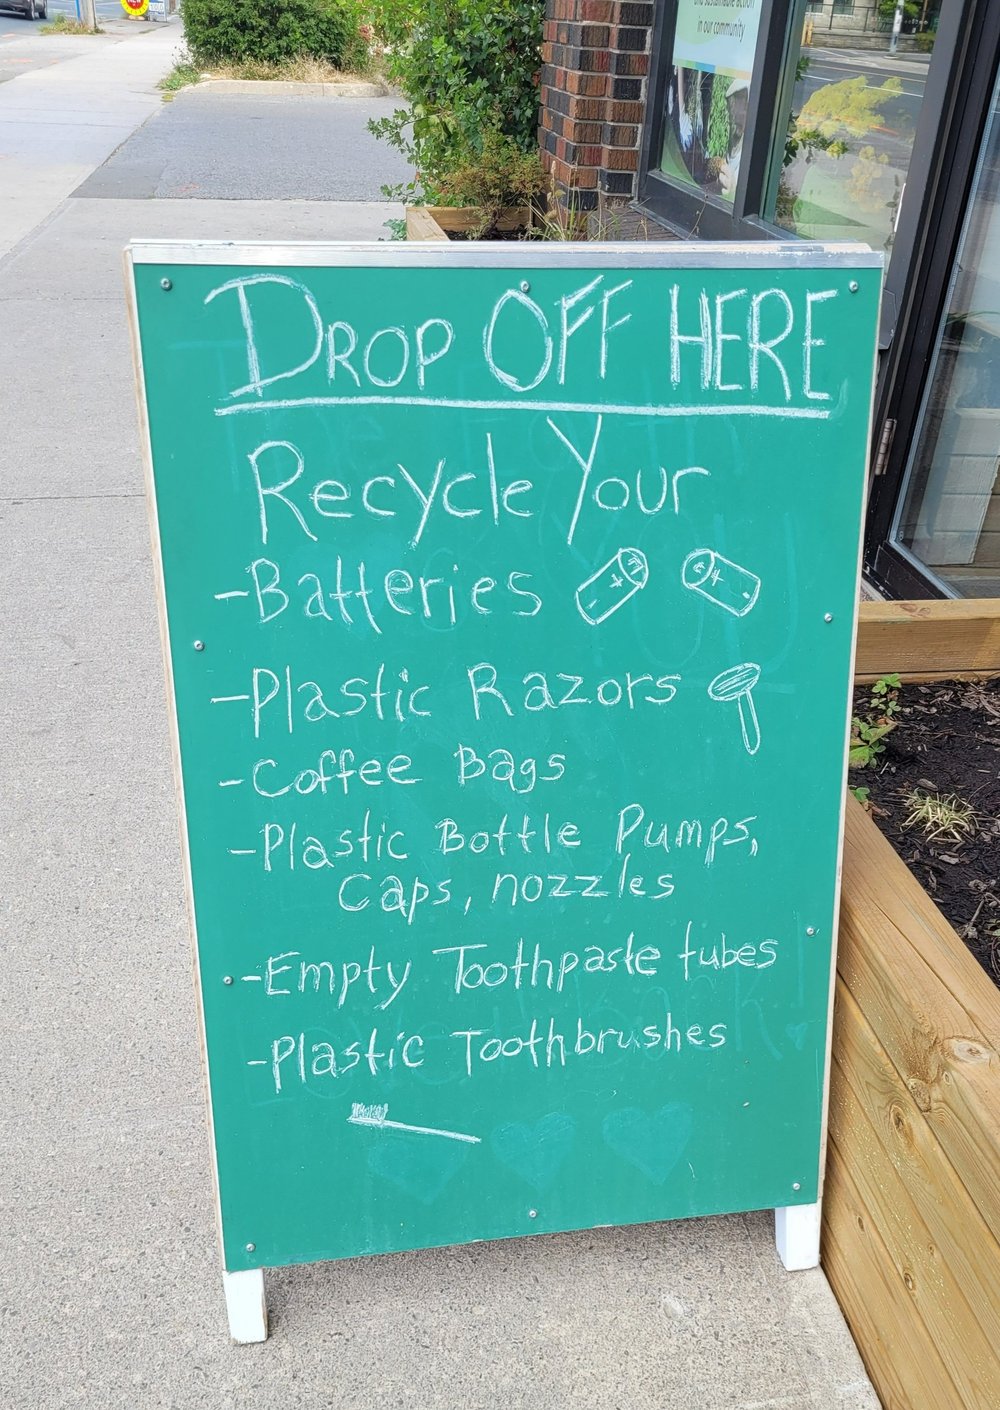 and sustainable action
in our community
NEW
DROP OFF HERE
Recycle Your
-Batteries
-Plastic Razors
-Coffee Bags
-Plastic Bottle Pumps,
Caps, nozzles
-Empty Toothpaste tubes
-Plastic Toothbrushes